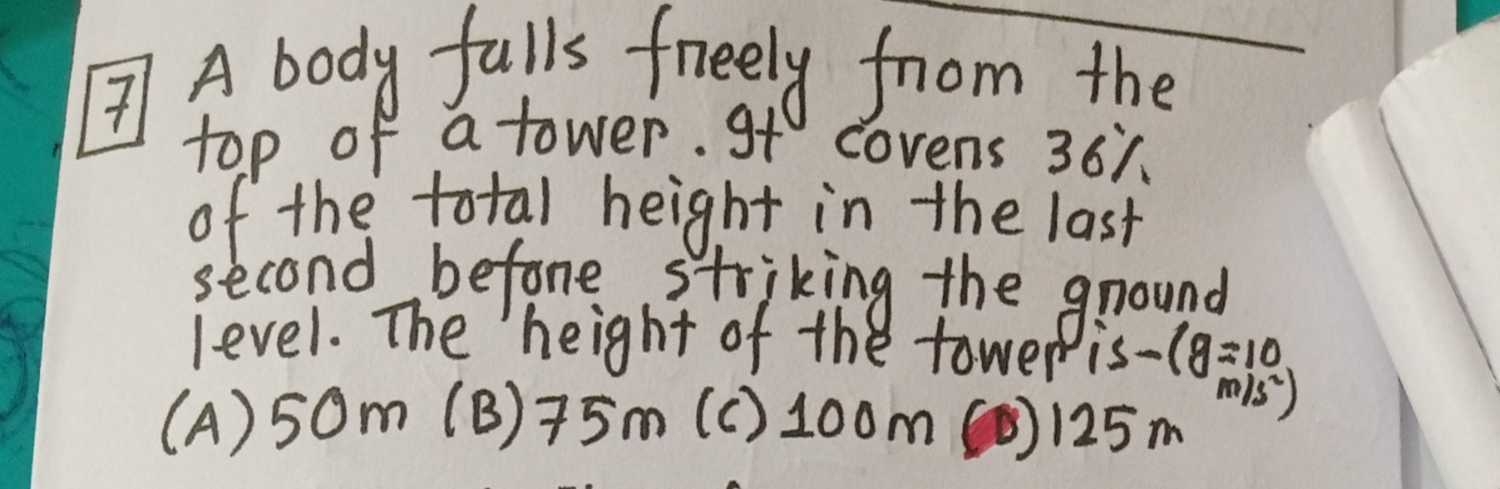 7 A body falls freely from the
top of a tower. It covers 36%
of the total height in the last
second before striking the ground
level. The height of the tower is-(g=10
m/s²)
(A) 50m (B) 75m (C) 100m (D) 125m